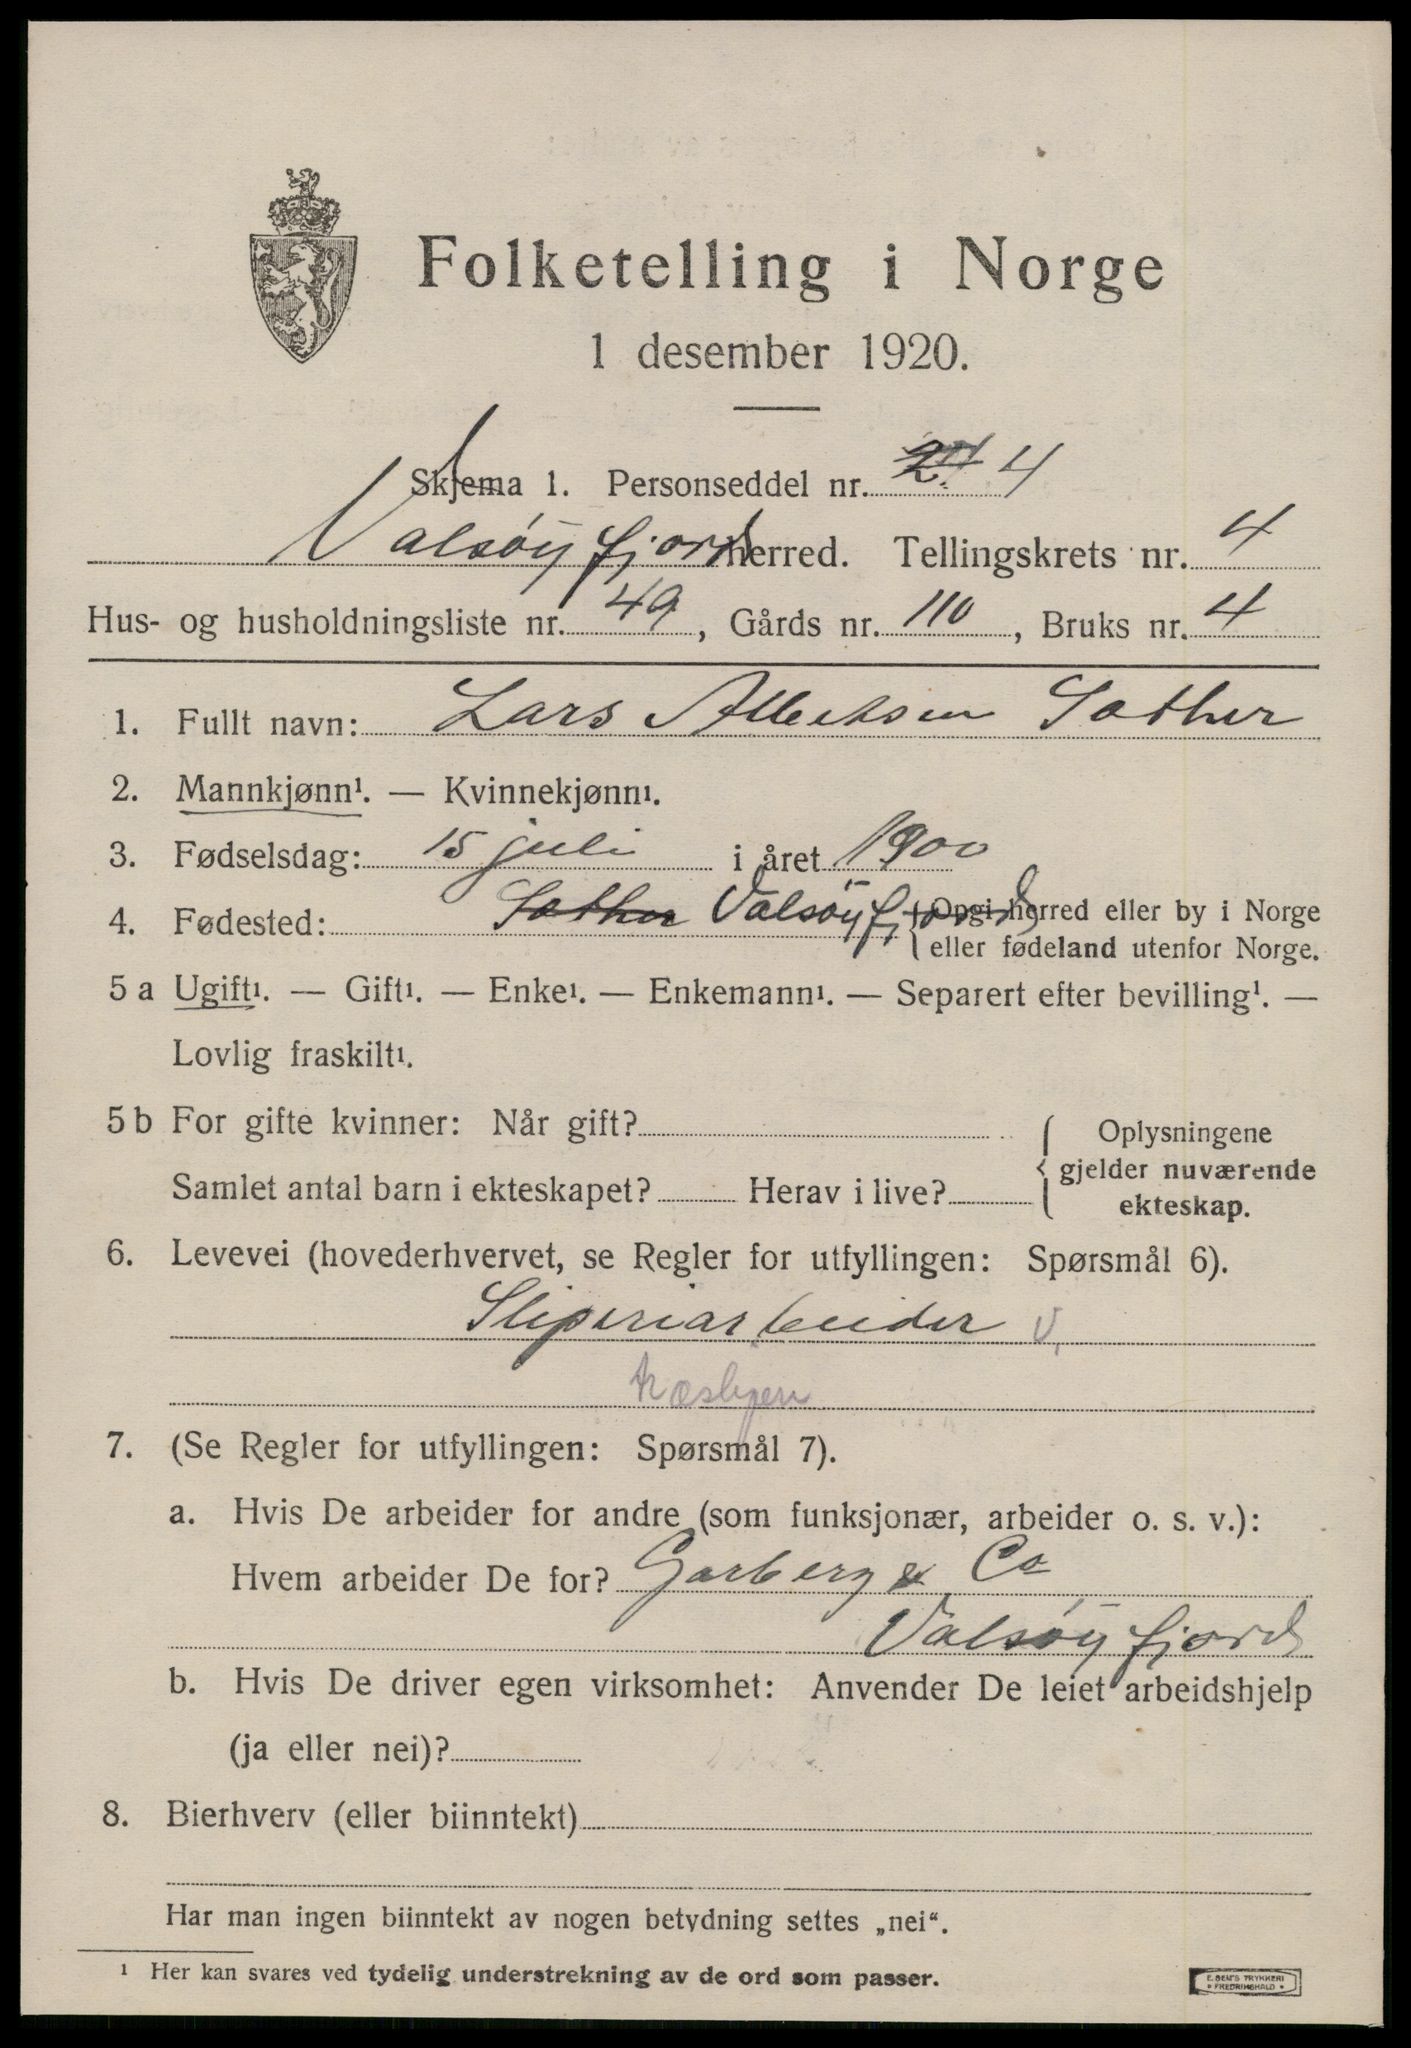 Folketelling i Norge
1 desember 1920.
Skjema 1. Personseddel nr. 4
Valsøyfjord herred. Tellingskrets nr. 4
Hus- og husholdningsliste nr. 49, Gårds nr. 110, Bruks nr. 4
1. Fullt navn: Lars Albertsen Sæther
2. Mannkjønn¹. — Kvinnekjønn¹.
3. Fødselsdag: 15 juli i året 1900
4. Fødested: Sæther Valsøyfjord { Opgi herred eller by i Norge
eller fødeland utenfor Norge.
5 a Ugift¹. — Gift¹. — Enke¹. — Enkemann¹. — Separert efter bevilling¹. —
Lovlig fraskilt¹.
5 b For gifte kvinner: Når gift?
Samlet antal barn i ekteskapet? Herav i live?
{ Oplysningene
gjelder nuværende
ekteskap.
6. Levevei (hovederhvervet, se Regler for utfyllingen: Spørsmål 6).
Sliperiarbeider v.
træsliperi
7. (Se Regler for utfyllingen: Spørsmål 7).
a. Hvis De arbeider for andre (som funksjonær, arbeider o. s. v.):
Hvem arbeider De for? Garberg & Co
Valsøyfjord
b. Hvis De driver egen virksomhet: Anvender De leiet arbeidshjelp
(ja eller nei)?
8. Bierhverv (eller biinntekt)
Har man ingen biinntekt av nogen betydning settes „nei“.
¹ Her kan svares ved tydelig understrekning av de ord som passer.
E. SEM'S TRYKKERI
FREDRIKSHALD